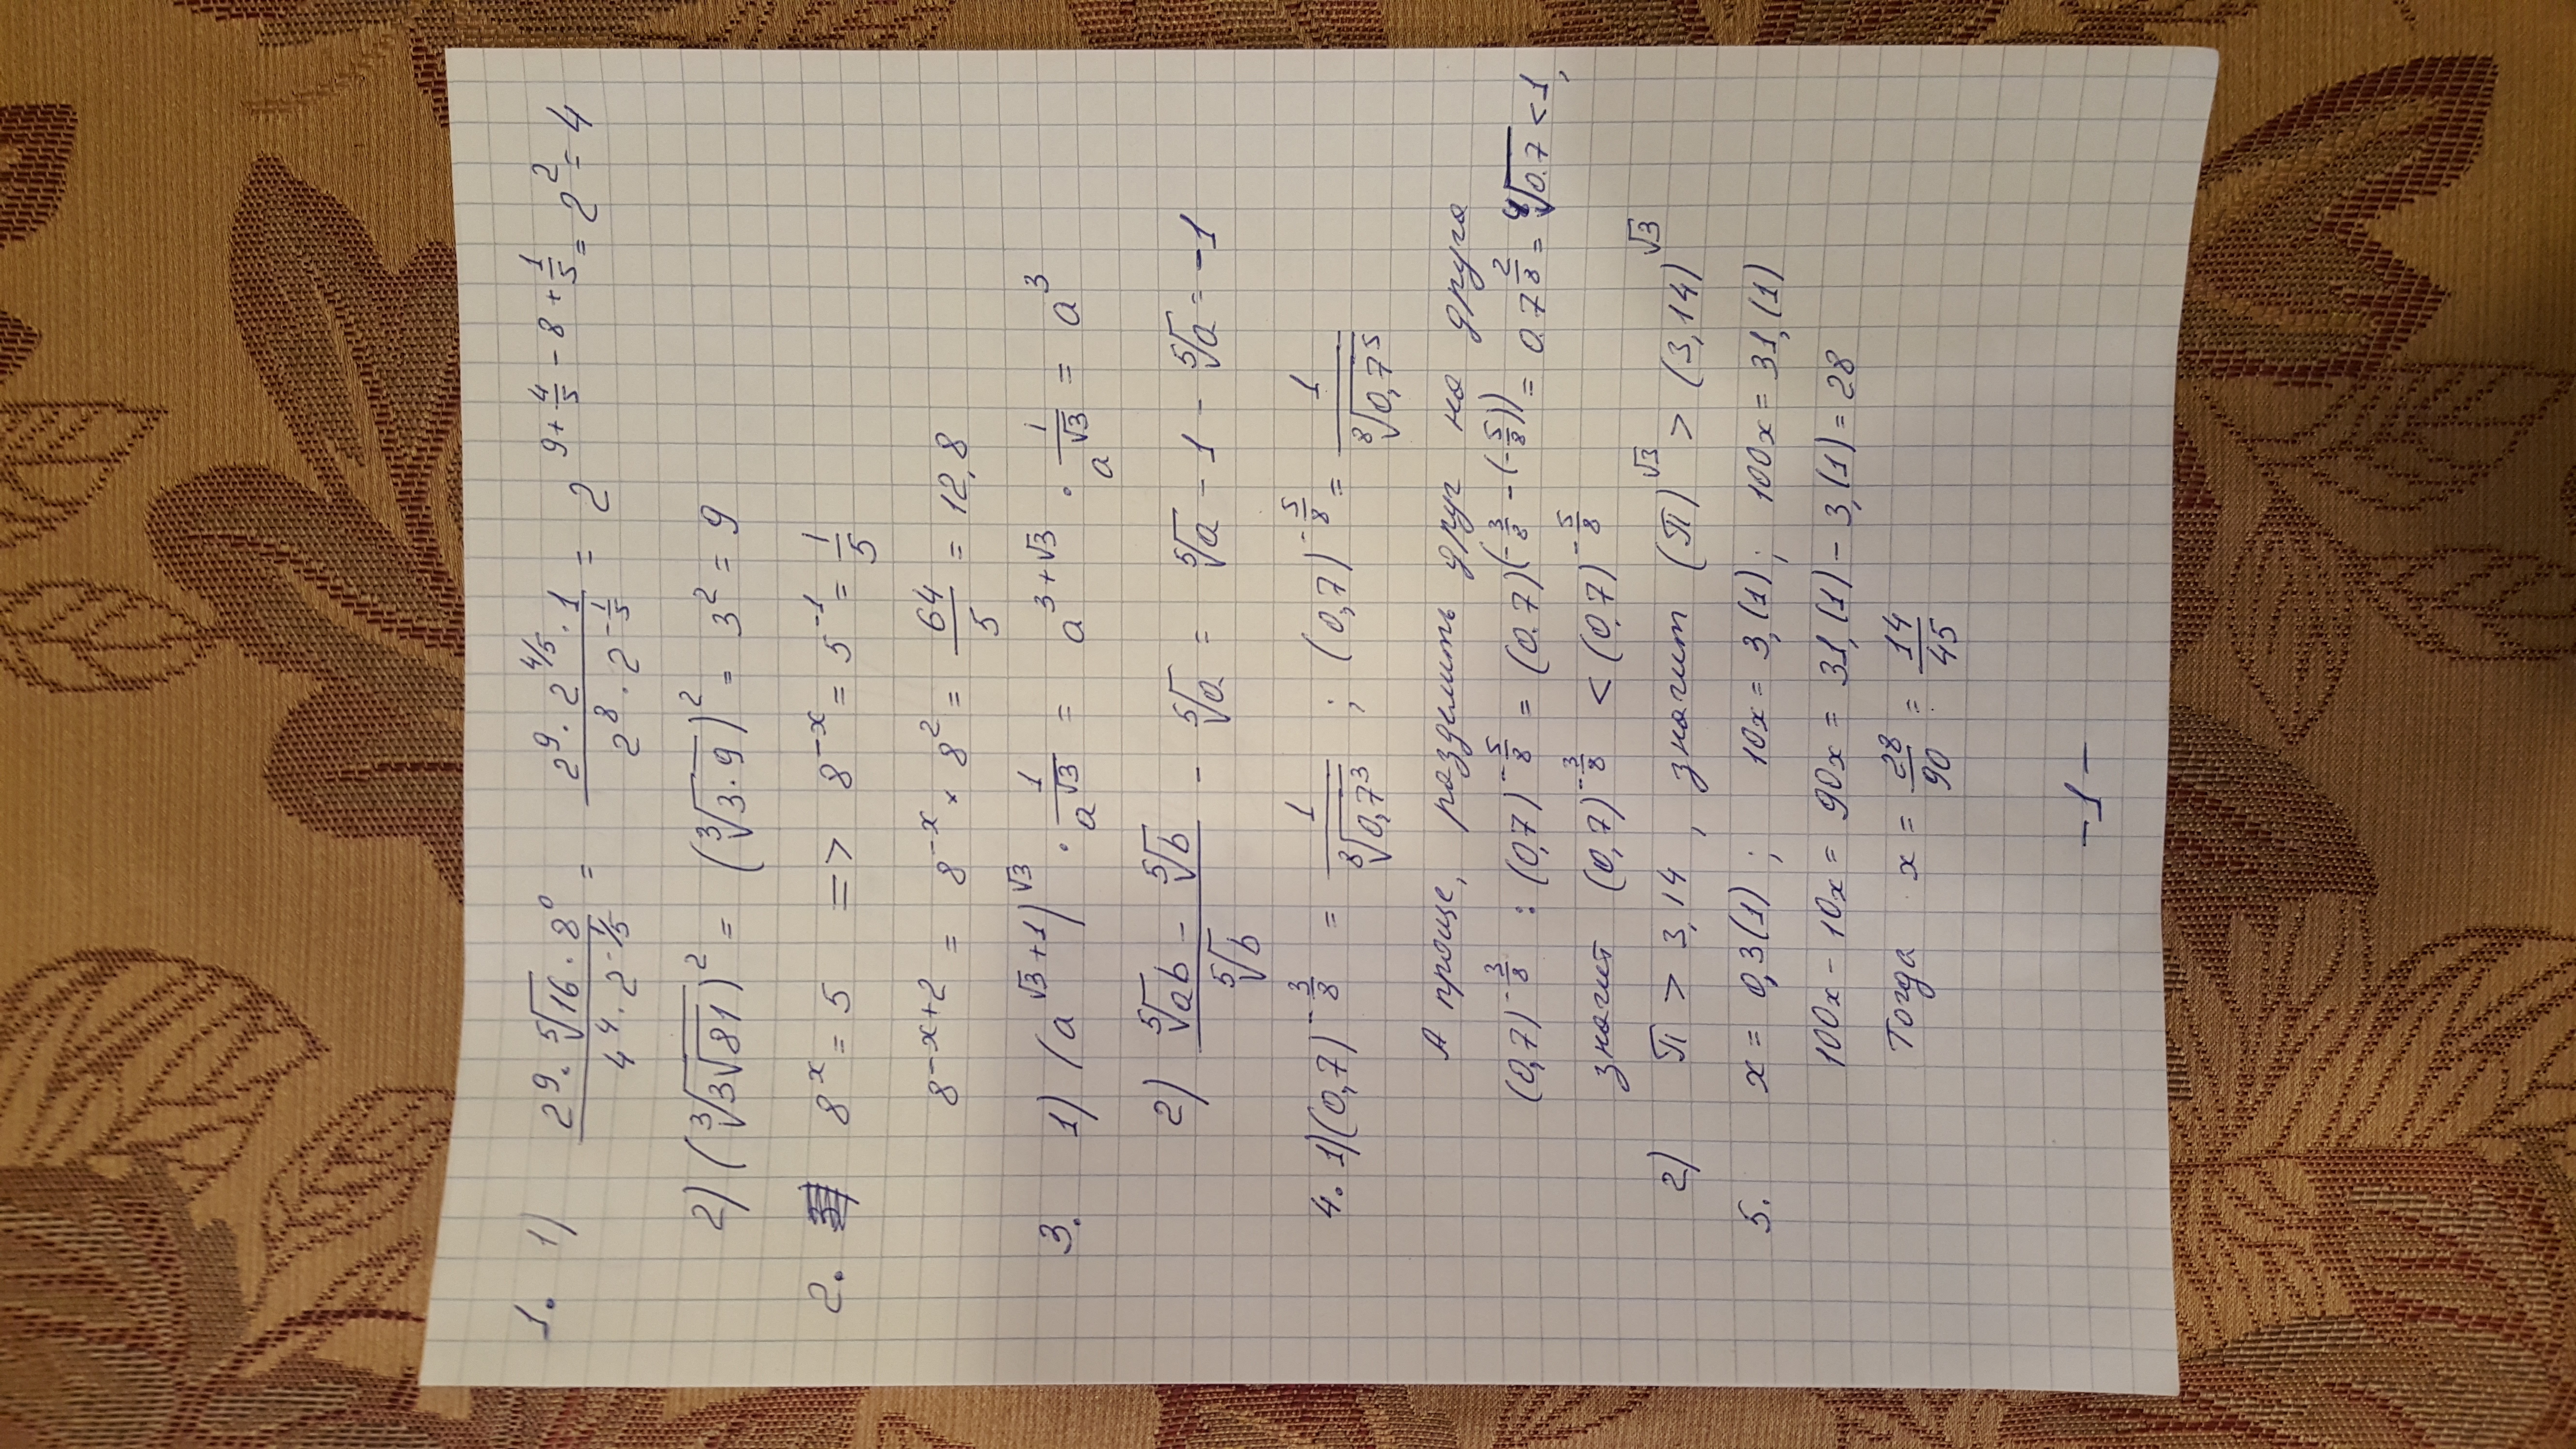 1. 1) (2⁹ · ⁵√16 · 8⁰) / (4⁴ · 2^(-1/5)) = (2⁹ · 2^(4/5) · 1) / (2⁸ · 2^(-1/5)) = 2^(9 + 4/5 - 8 + 1/5) = 2² = 4
2) (³√(3√81))² = (³√(3·9))² = 3² = 9
2. 8ˣ = 5 => 8⁻ˣ = 5⁻¹ = 1/5
8^(-x+2) = 8⁻ˣ × 8² = 64/5 = 12,8
3. 1) (a^(√3+1))^√3 · 1/a^√3 = a^(3+√3) · 1/a^√3 = a³
2) (⁵√ab - ⁵√b) / ⁵√b - ⁵√a = ⁵√a - 1 - ⁵√a = -1
4. 1) (0,7)^(-3/8) = 1/⁸√0,7³ ; (0,7)^(-5/8) = 1/⁸√0,7⁵
А проще, разделить друг на друга
(0,7)^(-3/8) : (0,7)^(-5/8) = (0.7)^(-3/8 - (-5/8)) = 0.7^(2/8) = ⁴√0.7 < 1,
значит (0,7)^(-3/8) < (0,7)^(-5/8)
2) π > 3,14 , значит (π)^√3 > (3,14)^√3
5. x = 0,3(1) ; 10x = 3,(1) ; 100x = 31,(1)
100x - 10x = 90x = 31,(1) - 3,(1) = 28
Тогда x = 28/90 = 14/45
-1-